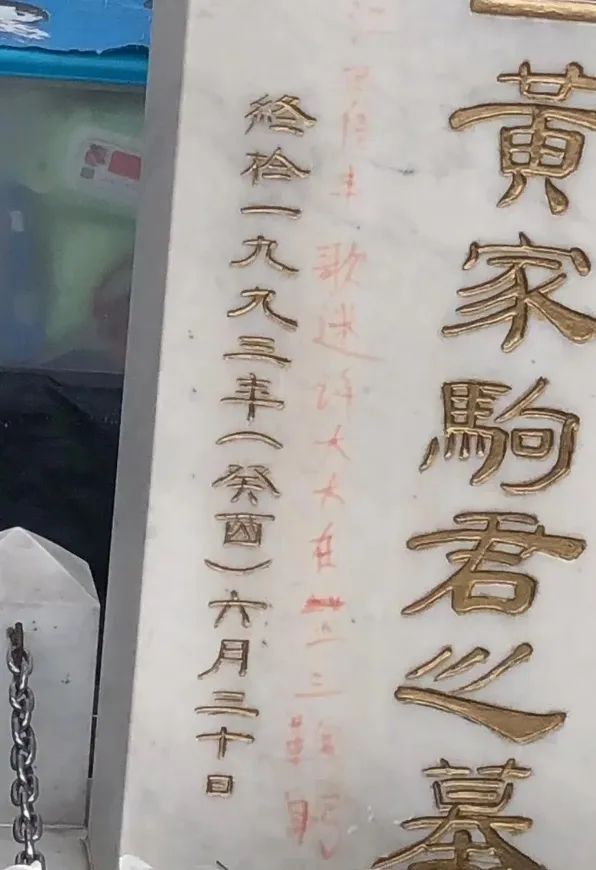 黃家駒君之墓
丰歌迷许大大在
終於一九九三年(癸酉)六月三十日